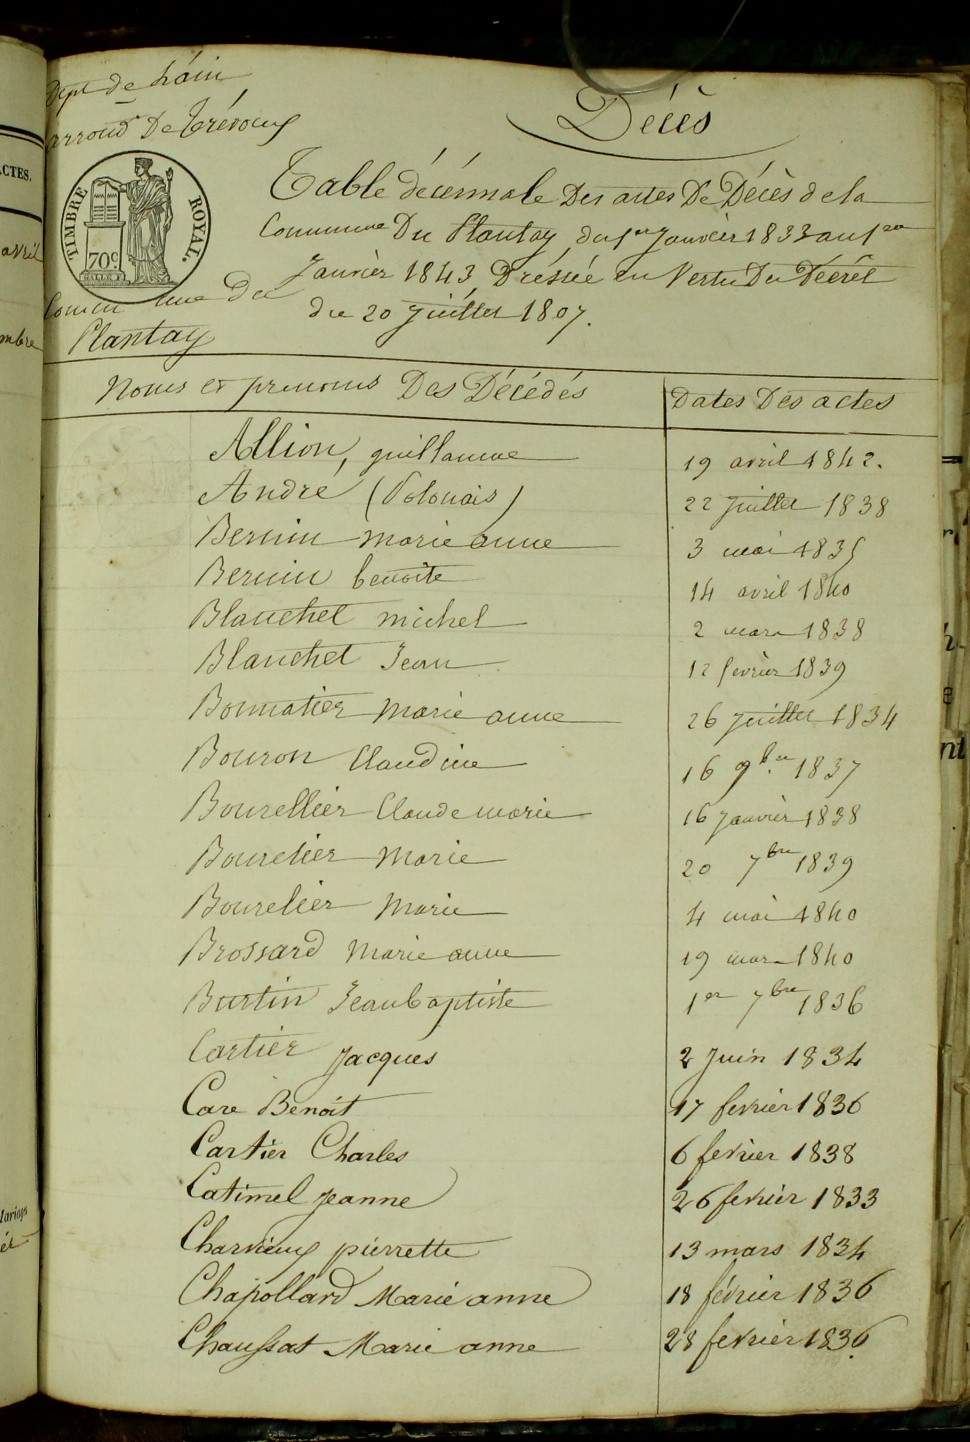 Dept de L'ain
arrond^t De Trévoux
Décès
TIMBRE ROYAL.
70^c
Commune Du
Plantay
Table décénnale Des actes De Décès de la
Commune Du Plantay du 1^er Janvièr 1833 au 1^er
Janvièr 1843 Dréssée en Vertu Du Décrêt
du 20 Juillet 1807.
Noms et prenoms Des Décédés Dates Des actes
Allion, guillaume 19 avril 1842.
André (Polonais) 22 Juillet 1838
Bernin marie anne 3 mai 1835
Bernin benoite 14 avril 1840
Blanchet michel 2 mars 1838
Blanchet Jean 12 fevrièr 1839
Bonnatièr marie anne 26 Juillet 1834
Bouron Claudine 16 9bre 1837
Bourellièr Claude marie 16 Janvièr 1838
Bourelièr marie 20 7bre 1839
Bourelièr marie 4 mai 1840
Brossard marie anne 19 mars 1840
Burtin Jean baptiste 1er 7bre 1836
Cartièr Jacques 2 Juin 1834
Care Benoit 17 fevrier 1836
Cartier Charles 6 fevrier 1838
Catimel Jeanne 26 fevrier 1833
Charvieux pierrette 13 mars 1834
Chapollard Marie anne 18 février 1836
Chaussat Marie anne 28 fevrier 1836
ACTES.
avril
mbre